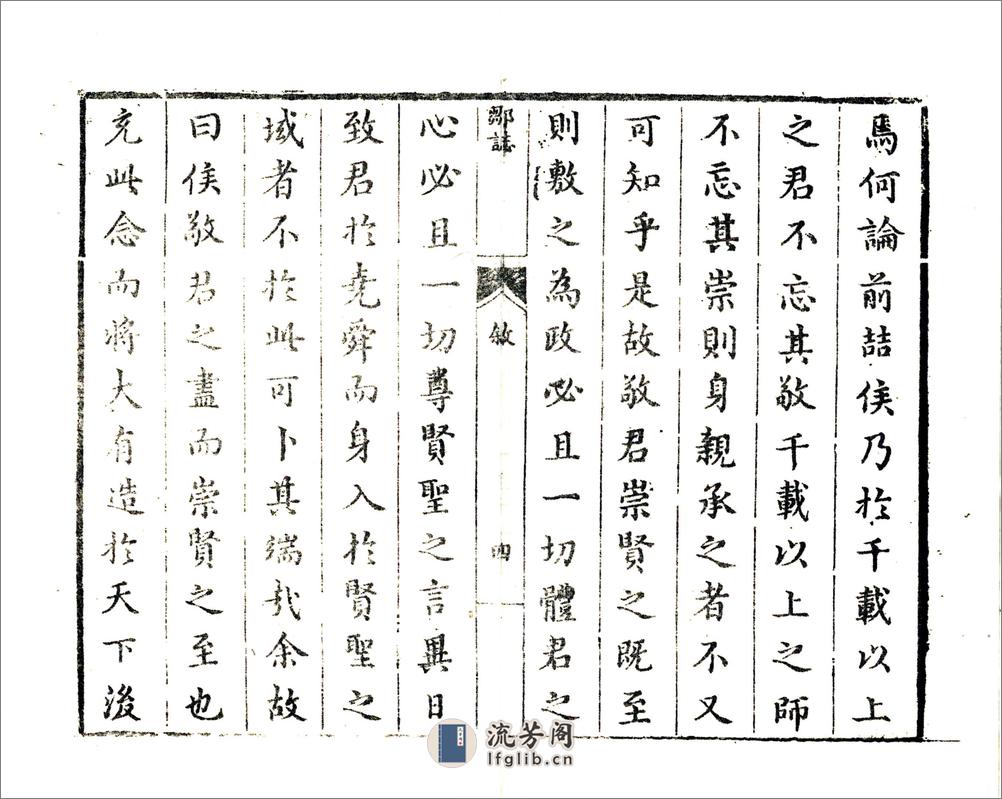 焉何論前喆侯乃於千載以上
之君不忘其敬千載以上之師
不忘其崇則身親承之者不又
可知乎是故敬君崇賢之既至
則敷之為政必且一切體君之
鄒誌
敘
四
心必且一切尊賢聖之言異日
致君於堯舜而身入於賢聖之
域者不於此可卜其端哉余故
曰侯敬君之盡而崇賢之至也
充此念而將大有造於天下後
流芳阁
lfglib.cn